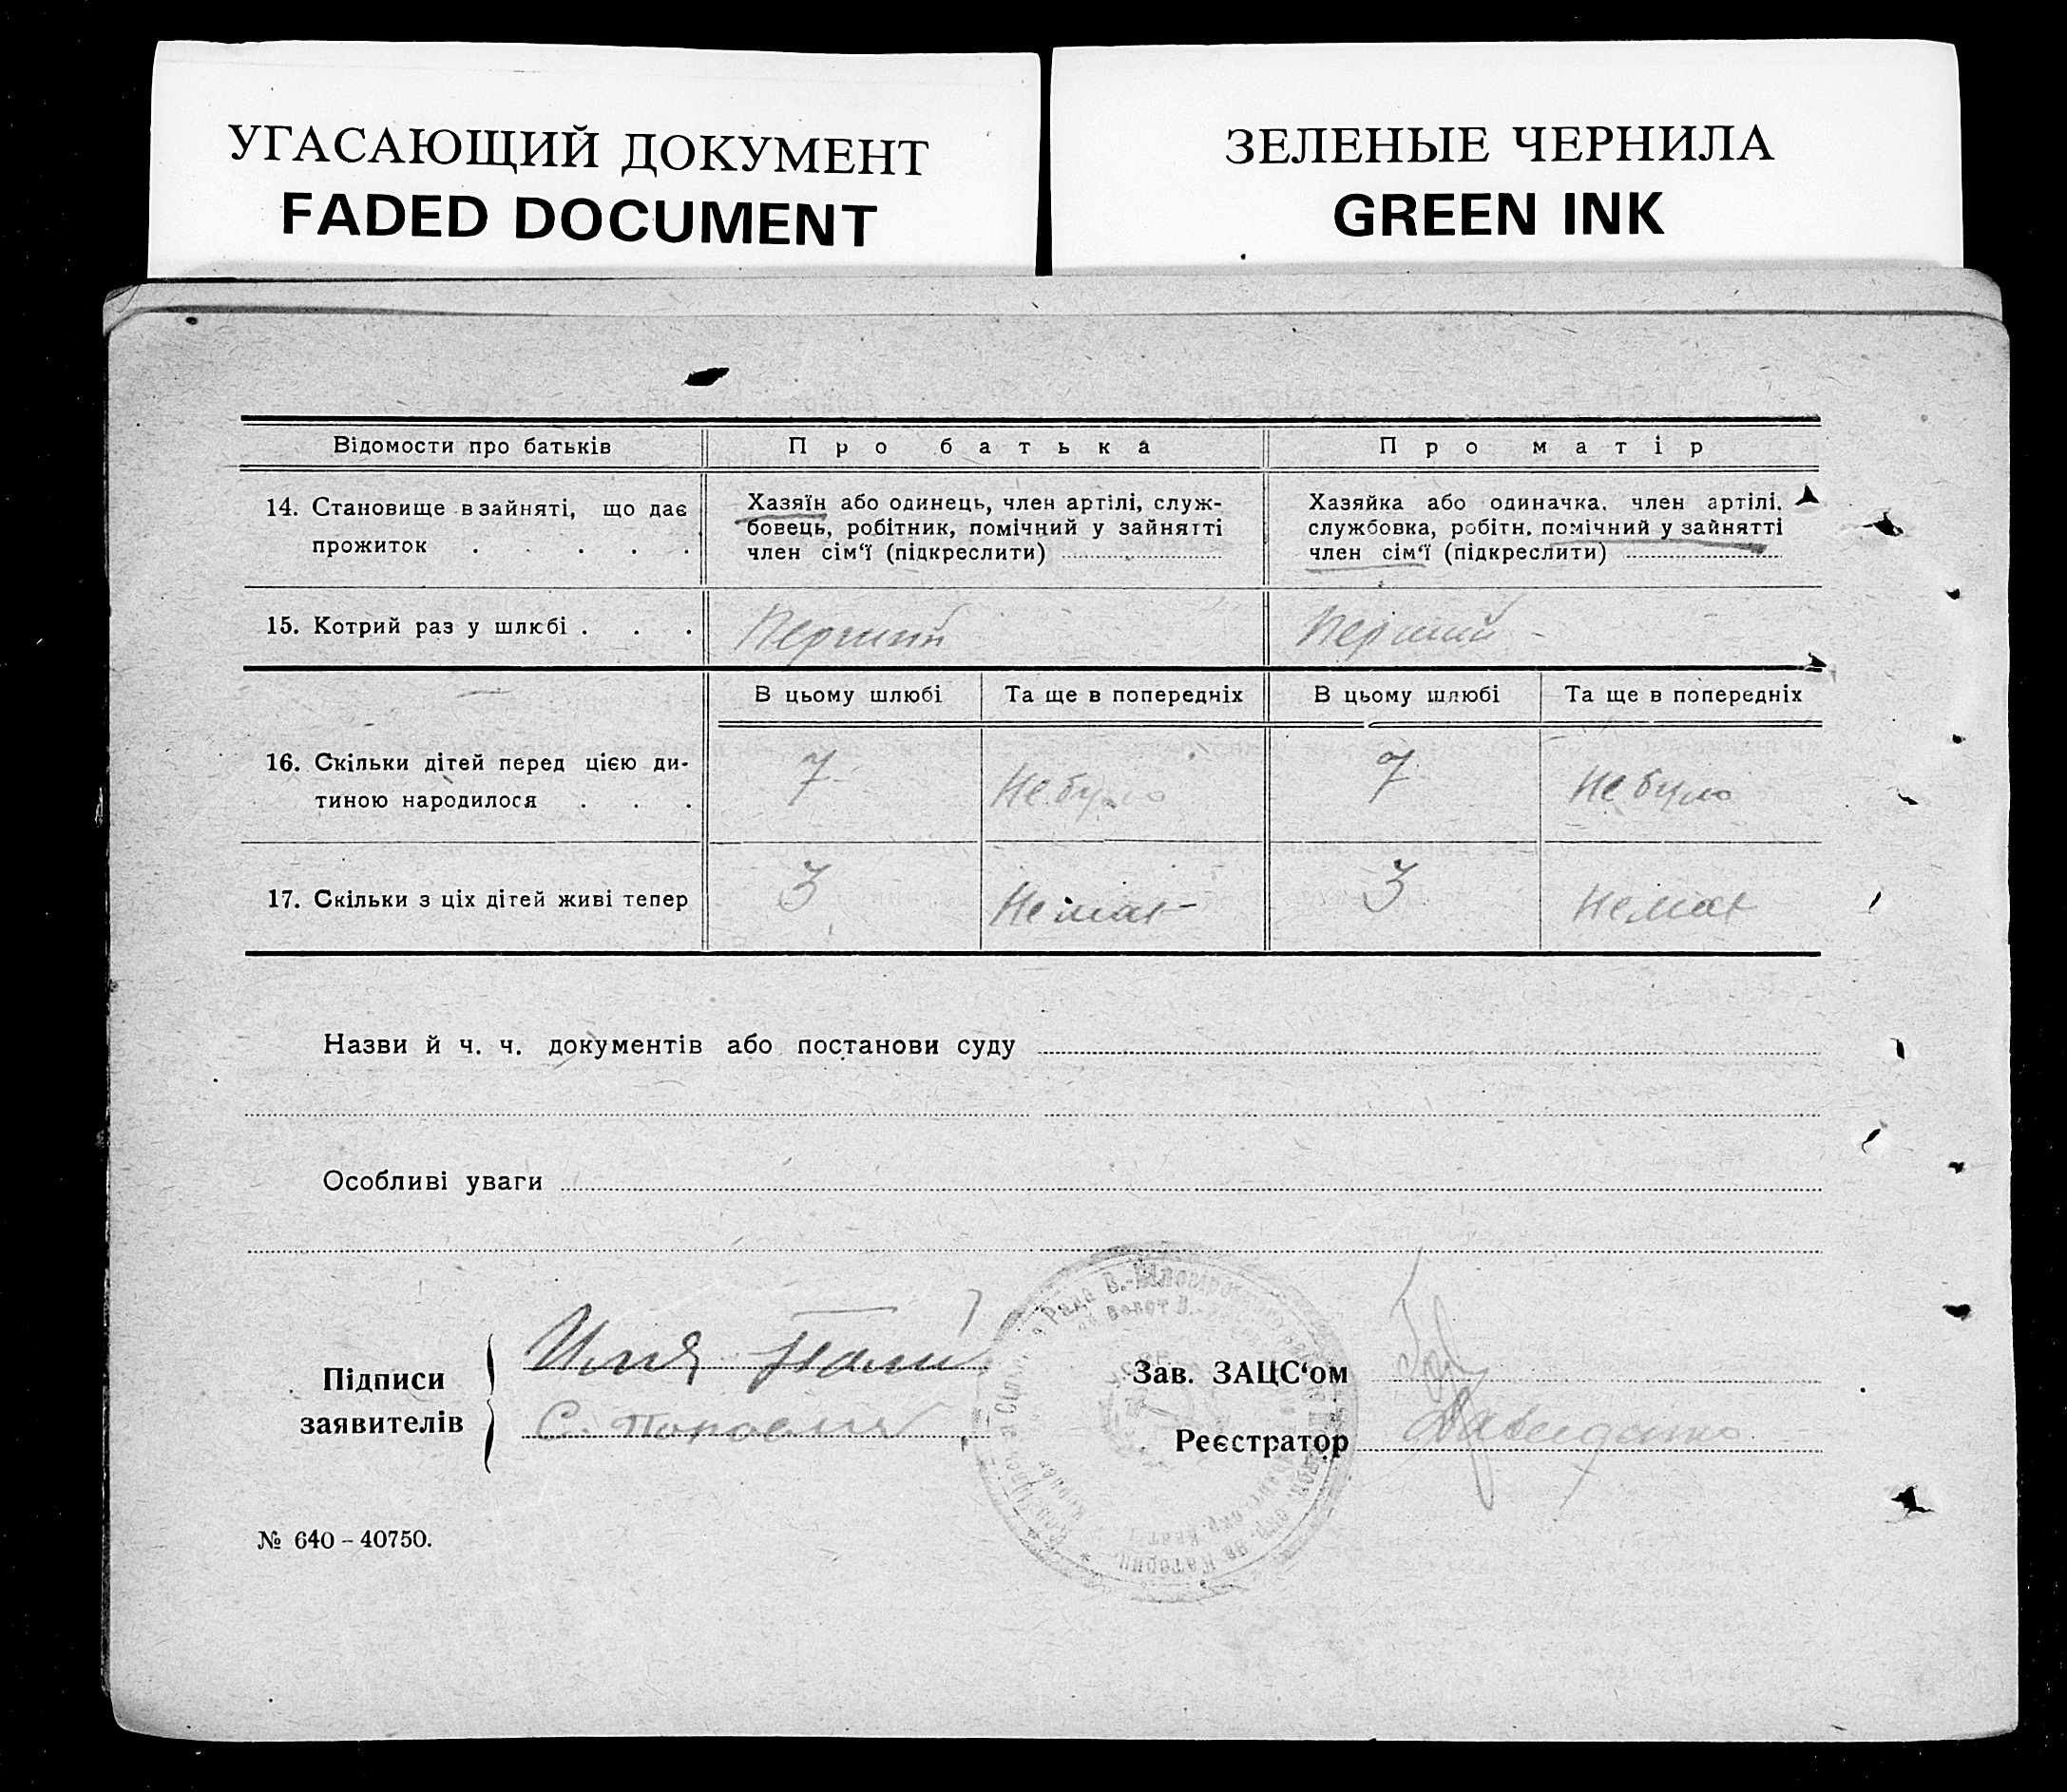 УГАСАЮЩИЙ ДОКУМЕНТ
FADED DOCUMENT
ЗЕЛЕНЫЕ ЧЕРНИЛА
GREEN INK
Відомости про батьків
Про батька
Про матір
14. Становище в зайняті, що дає
прожиток . . . . .
Хазяїн або одинець, член артілі, служ-
бовець, робітник, помічний у зайнятті
член сім‘ї (підкреслити)
Хазяйка або одиначка, член артілі,
службовка, робітн. помічний у зайнятті
член сім‘ї (підкреслити)
15. Котрий раз у шлюбі . . .
Перший
Перший
В цьому шлюбі
Та ще в попередніх
В цьому шлюбі
Та ще в попередніх
16. Скільки дітей перед цією ди-
тиною народилося . . .
7
Не було
7
Не було
17. Скільки з ціх дітей живі тепер
3
Немає
3
Немає
Назви й ч. ч. документів або постанови суду
Особливі уваги
Підписи
заявителів
Илля
С.
Зав. ЗАЦС‘ом
Реєстратор
Давиденко
№ 640 – 40750.